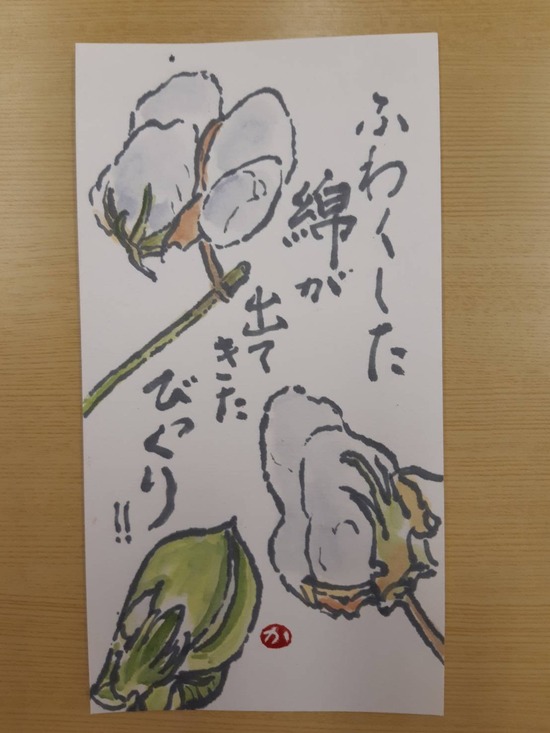 ふわ〱した
綿が
出て
きた
びっくり!!
か